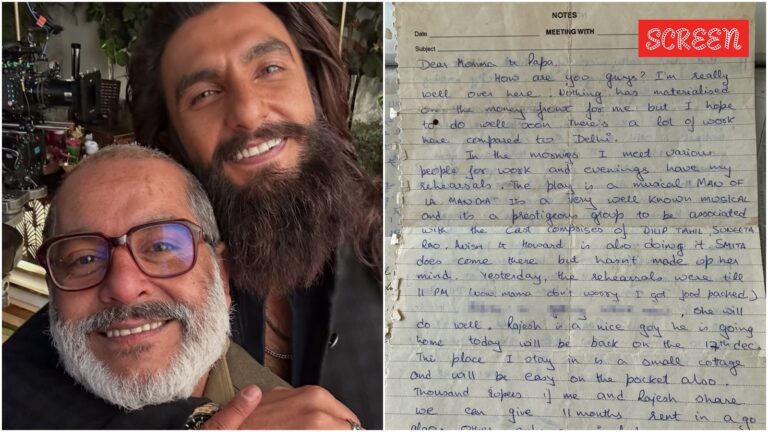 NOTES
SCREEN
Date
MEETING WITH
Subject
Dear Momma & Papa,
How are you guys? I'm really
well over here. Nothing has materialised
on the money front for me but I hope
to do well soon There's a lot of work
here compared to Delhi.
In the mornings I meet various
people for work and evenings have my
rehearsals. The play is a musical "MAN OF
LA MANCHA" Its a very well known musical
and its a prestigeous group to be associated
with the cast comprises of DILIP TAHIL SUGEETA
RAO. & Howard is also doing it. SMITA
does come there but hasn't made up her
mind. Yesterday, the rehearsals were till
11 PM (now mama don't worry I got food packed.)
, she will
do well. Rajesh is a nice guy he is going
home today will be back on the 17th dec.
The place I stay in is a small cottage
and will be easy on the pocket also.
Thousand Rupees if me and Rajesh share
we can give 11 months rent in a go
also.